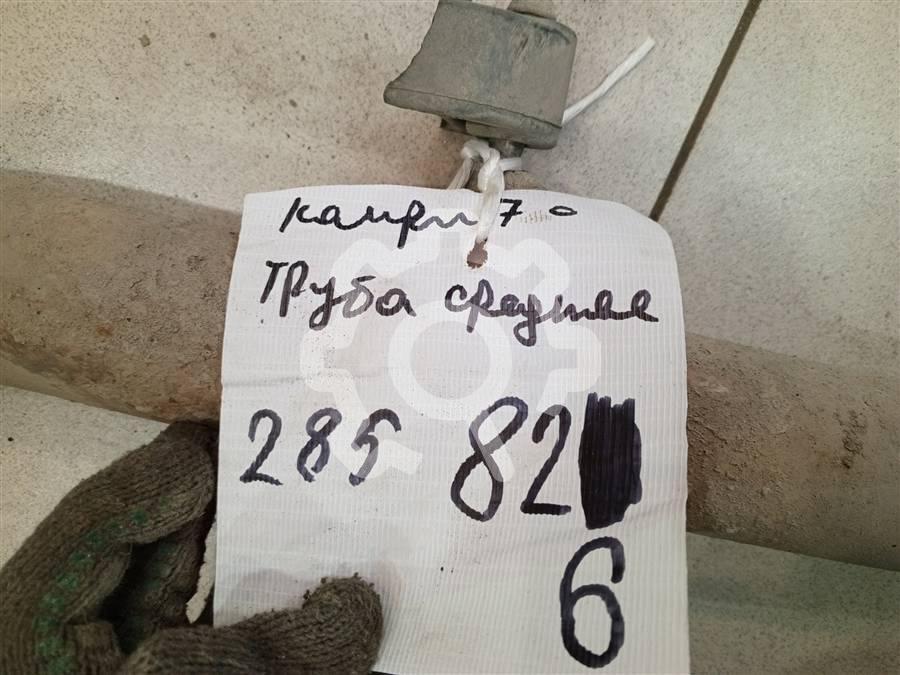 камри 70
Труба средняя
285 82
6